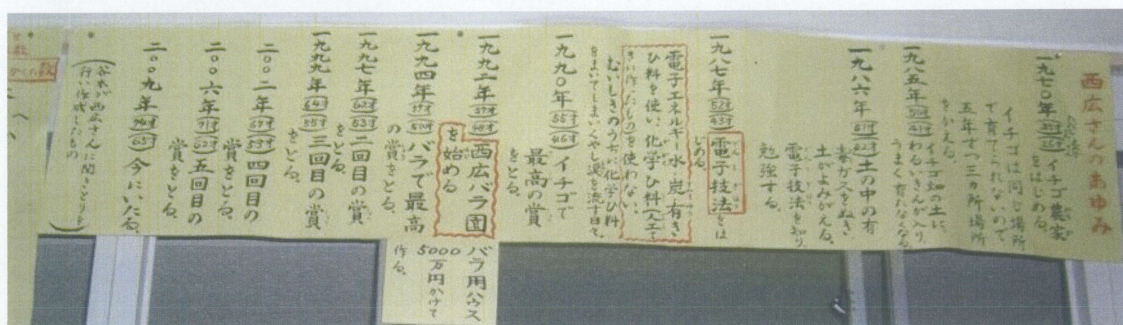 西広さんのあゆみ
一九七〇年 イチゴ農家
をはじめる。
イチゴは同じ場所
で育てられないので、
五年ずつ三カ所場所
をかえる。
一九八五年 イチゴ畑の土に、
わるいきんが入り
うまく育たなくなる。
一九八六年 土の中の有
毒ガスをぬき
土がよみがえる。
電子技法を知り
勉強する。
一九八七年 電子技法をは
じめる。
電子エネルギー水・炭・有き
ひ料を使い、化学ひ料(人工て
きに作ったもの)を使わない。
むいしきのうちに化学ひ料
をまいてしまい、くやし涙を流す日々。
一九九〇年 イチゴで
最高の賞
をとる。
一九九二年 西広バラ園
を始める
バラ用ハウス
5000
万円かけて
作る。
一九九四年 バラで最高
の賞をとる。
一九九七年 二回目の賞
をとる。
一九九九年 三回目の賞
をとる。
二〇〇二年 四回目の
賞をとる。
二〇〇六年 五回目の
賞をとる。
二〇〇九年 今にいたる。
(谷本が西広さんに聞きとりを
行い作成したもの)